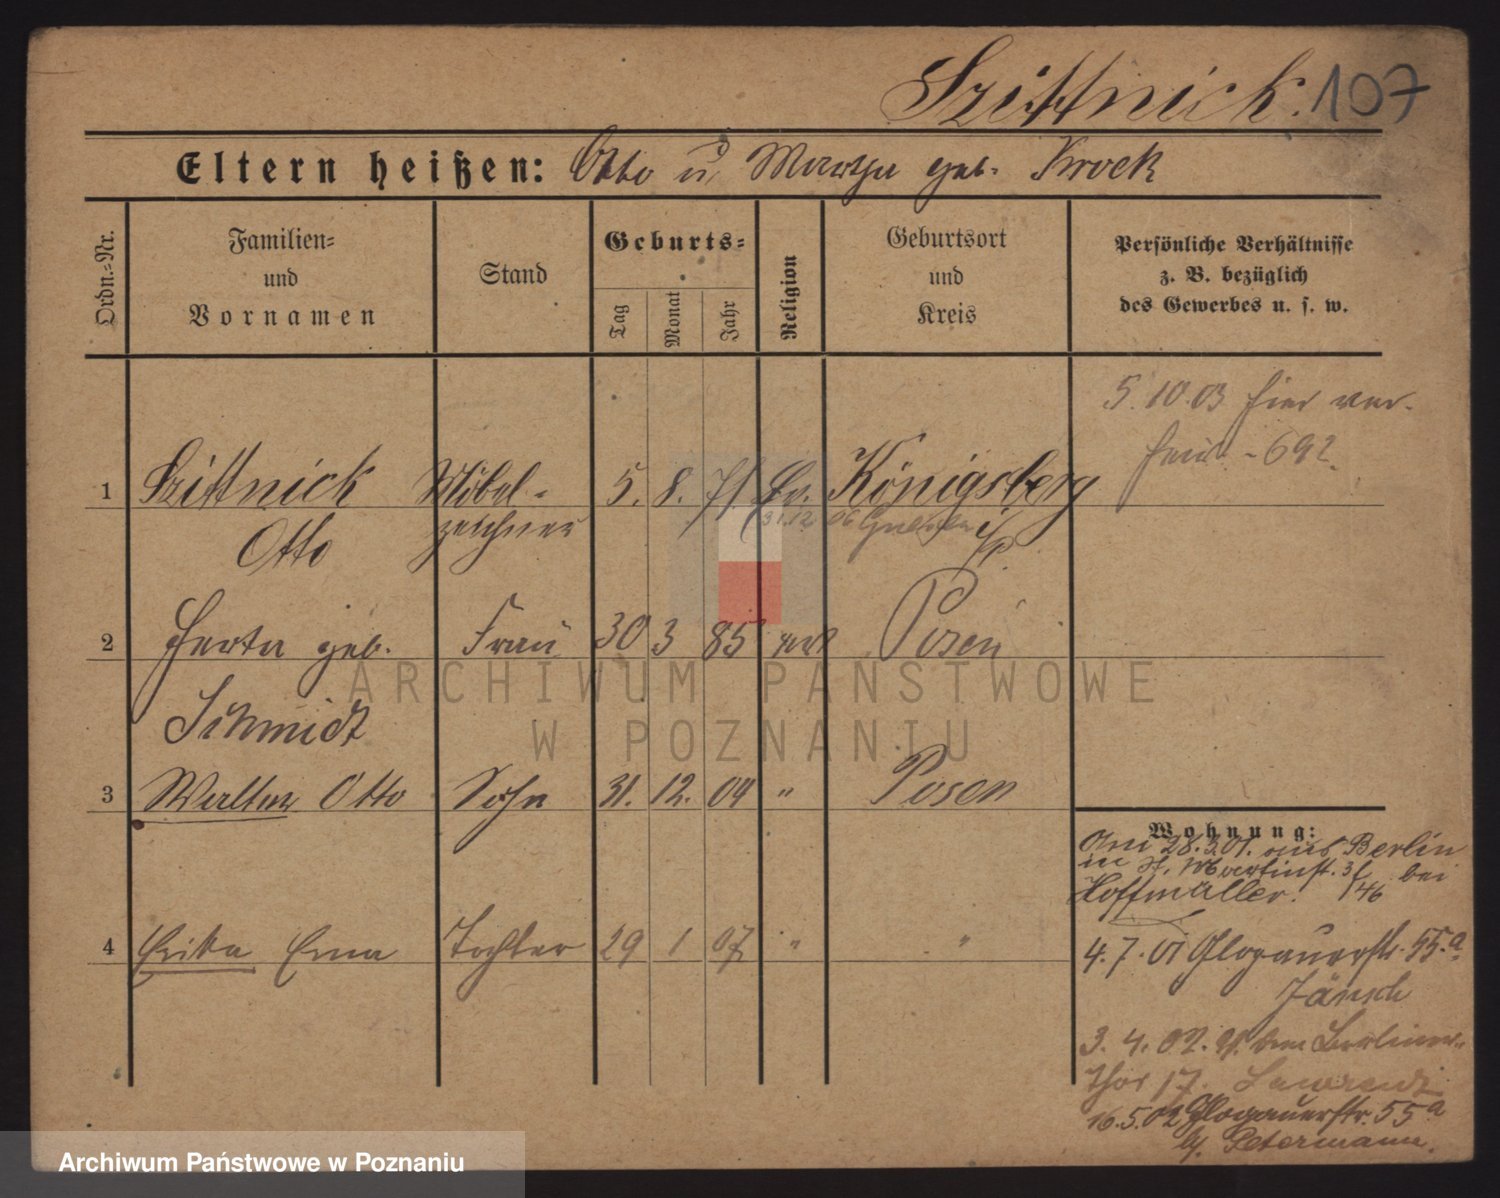 Szittnick. 107
Eltern heißen: Otto u. Martha geb. Krock
Ordn.=Nr.
Familien=
und
Vornamen
Stand
Geburts=
Tag
Monat
Jahr
Religion
Geburtsort
und
Kreis
Persönliche Verhältnisse
z. B. bezüglich
des Gewerbes u. s. w.
5.10.03 hier ver-
heir. - 692.
1 Szittnick Möbel- 5. 8. 71 Ev. Königsberg
Otto zeichner 31.12 06
2 Herta geb. Frau 30 3 85 Posen
Schmidt
3 Walter Otto Sohn 31. 12. 04 " Posen
4 Erika Erna Tochter 29 1 07 " "
Wohnung:
Am 28.3.01. aus Berlin
in St. Martinst. bei
Hoffmüller. 46
4.7.01 Glogauerstr. 55.a
Jänsch
3.4.02. Berliner-
thor 17.
16.5.02 Glogauerstr. 55a
b. Petermann.
ARCHIWUM PAŃSTWOWE
W POZNANIU
Archiwum Państwowe w Poznaniu